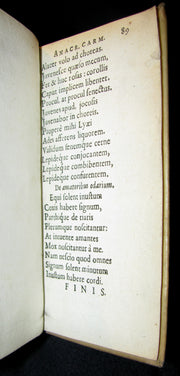 ANACR. CARM. 89
Alacer volo ad choreas.
Iuvenesce quæso mecum,
Et & huc rosas: corollis
Caput implicem libenter.
Procul, at procul senectus.
Iuvenes apud, jocolis
Iuvenabor in choreis.
Properè mihi Lyæi
Ades afferens liquorem.
Validum senemque cerne
Lepideque conjocantem,
Lepideque combibentem,
Lepideque confurentem.
De amatoribus odarium.
Equi solent inustum
Coxis habere signum,
Parthique de tiaris
Plerumque noscitantur:
At intuente amantes
Mox noscitantur à me.
Nam nescio quod omnes
Signum solent minutum
Inustum habere cordi.
FINIS.